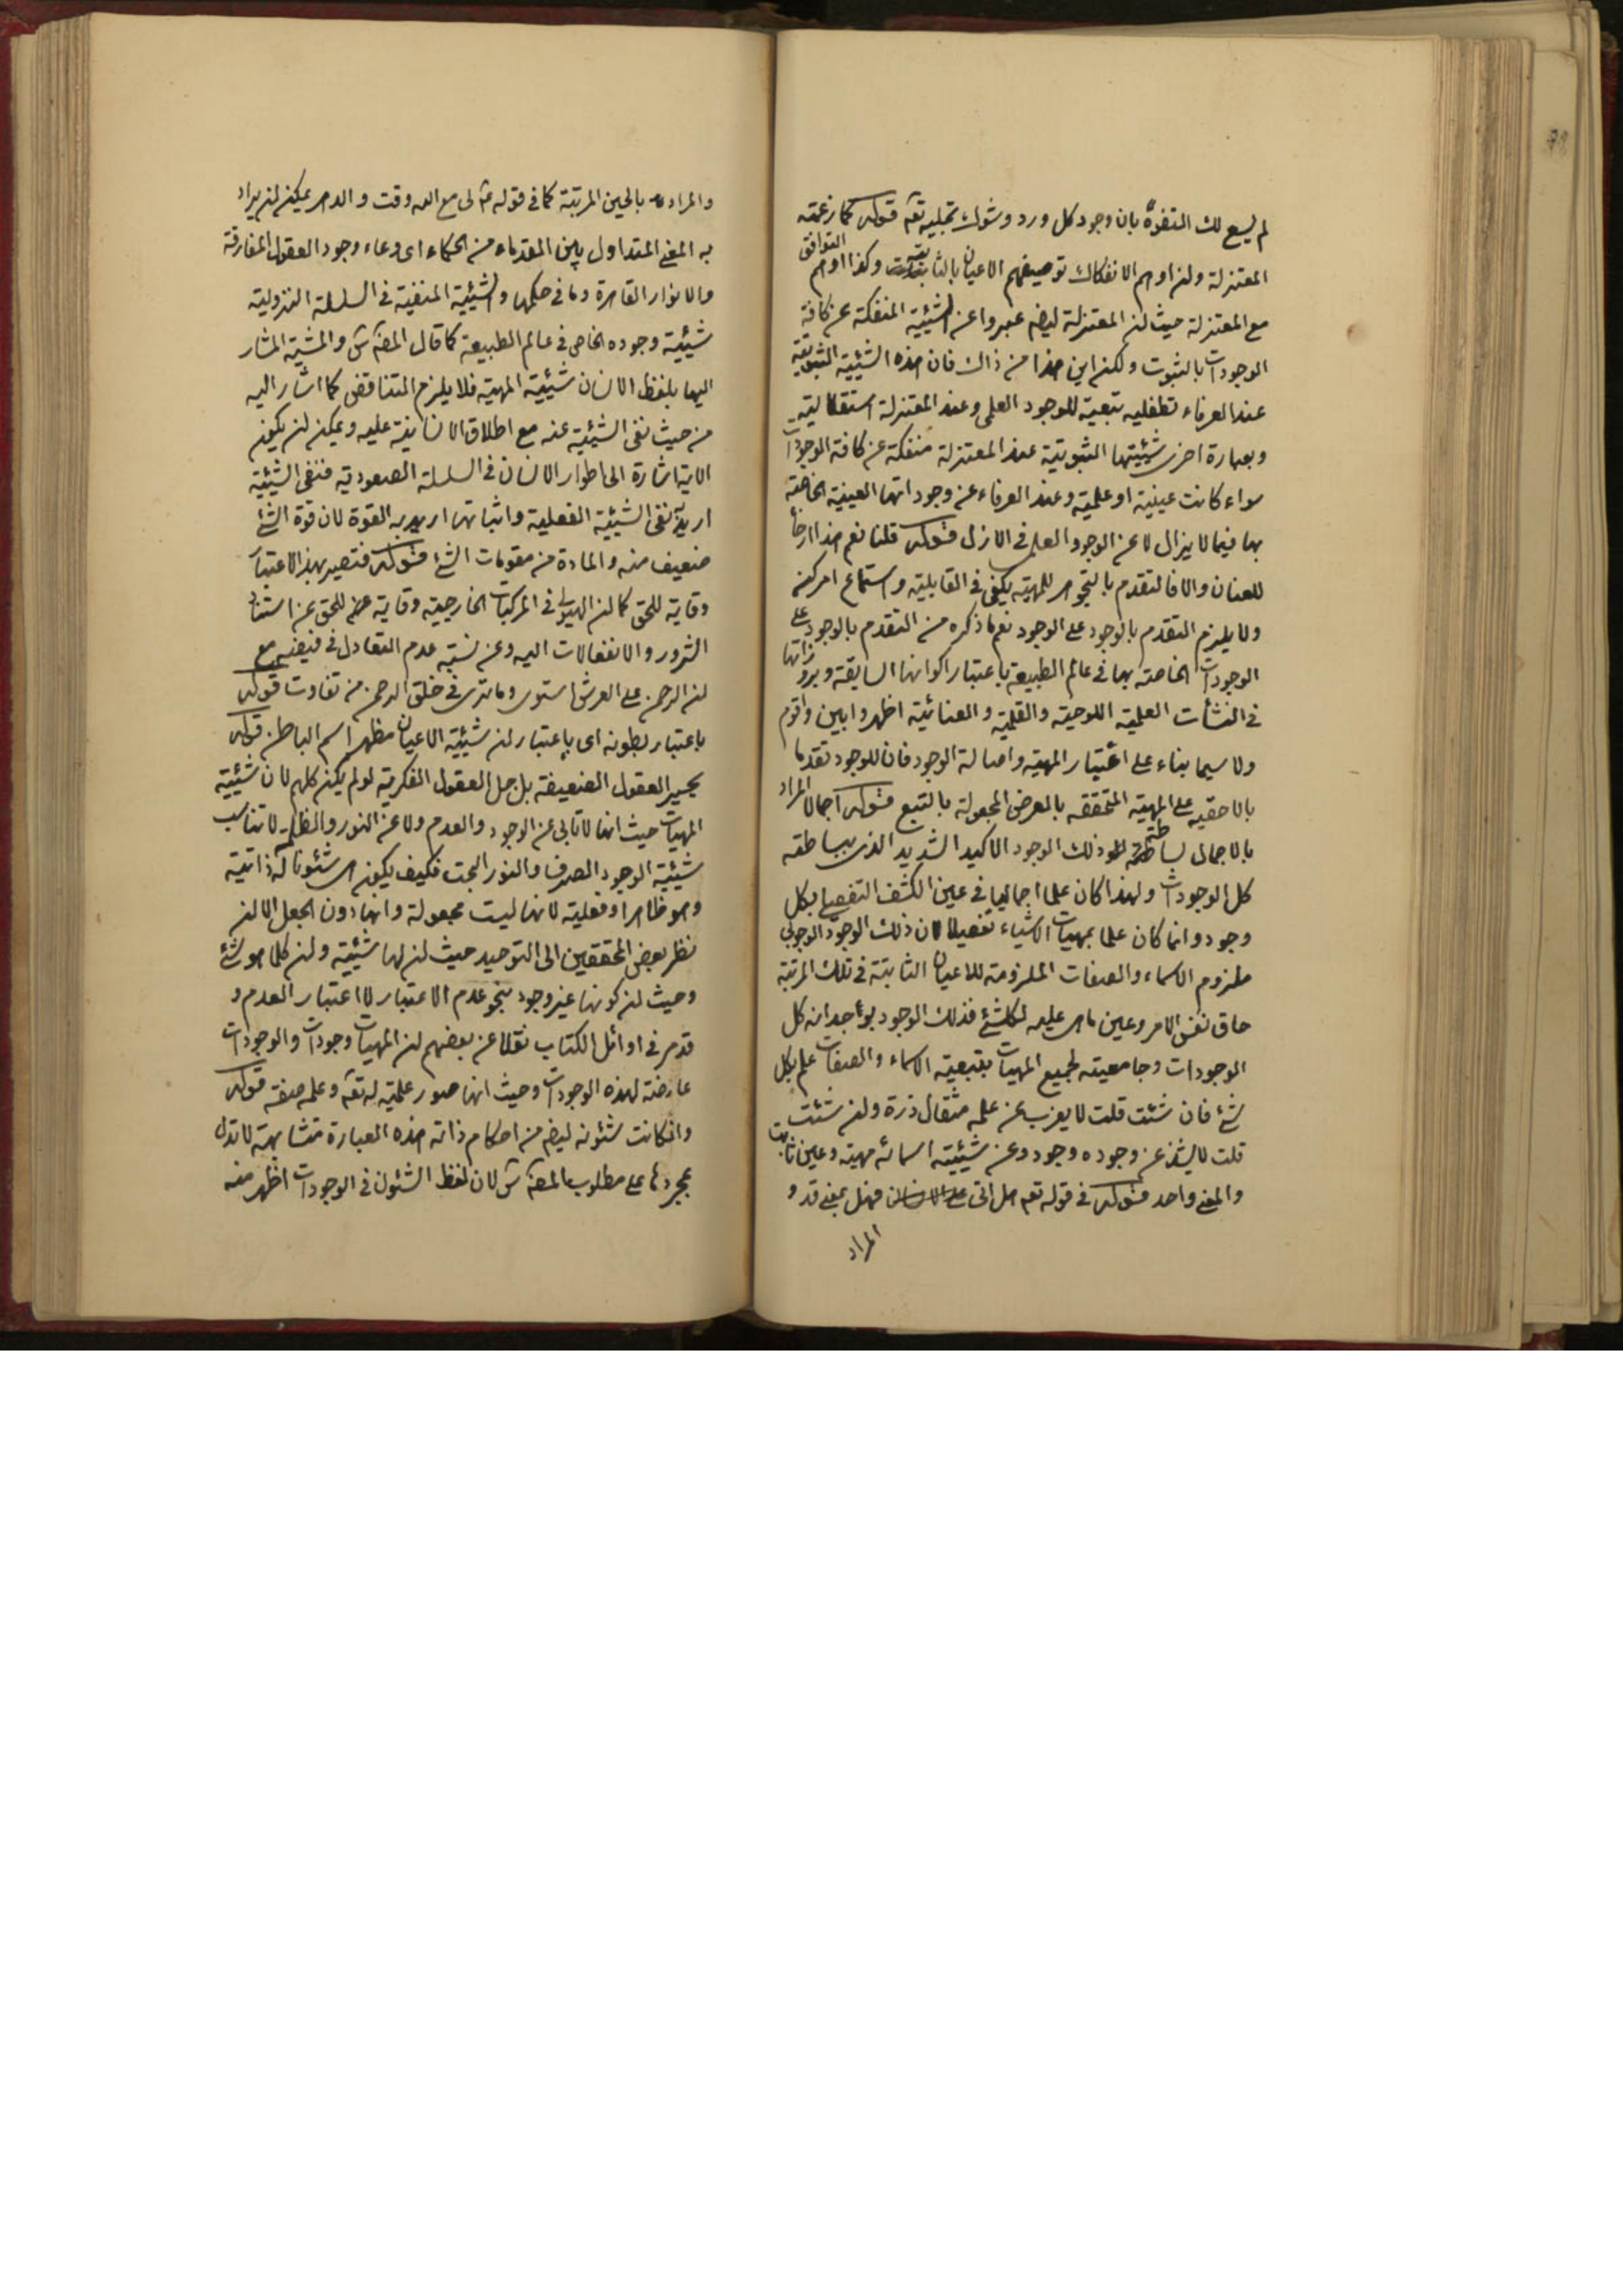 لم يسع لك التفوه بان وجود كل ورد وشوك تجليه تعه قوله كما زعمته
المعتزلة ولن اوهم الانفكاك توصيفهم الاعيان بالثابتة وكذا اوهم التوافق
مع المعتزلة حيث لن المعتزلة ليضه عبروا عن الشيئية المنفكة عن كافة
الوجودات بالثبوت ولكن اين هذا من ذاك فان هذه الشيئية الثبوتية
عند العرفاء تطفليه بتبعية للوجود العلمي وعند المعتزلة استقلالية
وبعبارة اخرى شيئيتها الثبوتية عند المعتزلة منفكة عن كافة الوجودات
سواء كانت عينية او علمية وعند العرفاء عن وجوداتها العينية الخاصة
بها فيما لا يزال لا عن الوجود العلمي في الازل قوله قلنا نعم هذا ارخاء
للعنان والا فالتقدم بالتجوهر للمهية يكفي في القابلية واستماع امر كن
ولا يلزم التقدم بالوجود على الوجود نعم ما ذكره من التقدم بالوجود على
الوجودات الخاصة بها في عالم الطبيعة باعتبار اكوانها السابقة وبروزاتها
في النشأت العلمية اللوحية والقلمية والعنائية اظهر وابين واقوم
ولا سيما بناء على اعتبار المهية واصالة الوجود فان للوجود تقدما
بالاحقيه على المهية المتحققه بالعرض المجعولة بالتبع قوله اجمالا المراد
بالاجمال بساطة ذلك الوجود الاكيد الشديد الذي ببساطته
كل الوجودات ولهذا كان علما اجماليا في عين الكشف التفصيلي بكل
وجود وانما كان علما بمهيات الاشياء تفصيلا لان ذلك الوجود الوجوبي
ملزوم الاسماء والصفات الملزومة للاعيان الثابتة في تلك المرتبة
حاق نفس الامر وعين ما هي عليه لكل شئ فذلك الوجود بواجدانه كل
الموجودات وجامعيته لجميع المهيات بتبعية الاسماء والصفات علم بكل
شئ فان شئت قلت لا يعزب عن علمه مثقال ذرة ولن شئت
قلت لا يشذ عن وجوده وجود وعن شيئية اسمائه مهية وعين ثابت
والمعنى واحد قوله في قوله تعه هل اتى على الانسان فهل بمعنى قد و
المراد
والمراد بالحين المرتبة كما في قوله ع لى مع الله وقت والدهر يمكن لن يراد
به المعنى المتداول بين القدماء من الحكماء اى وعاء وجود العقول المفارقة
والانوار القاهرة وما في حكمها والشيئية المنفية في السلسلة النزولية
شيئية وجوده الخاص في عالم الطبيعة كما قال المصه س والشيئية المشار
اليها بلفظ الانسان شيئية المهية فلا يلزم التناقض كما اشار اليه
من حيث نفى الشيئية عنه مع اطلاق الانسانية عليه ويمكن لن يكون
الاية اشارة الى اطوار الانسان في السلسلة الصعودية فنفى الشيئية
اريد نفى الشيئية الفعلية واثباتها اريد به القوة لان قوة الشئ
ضعيف منه والمادة من مقومات الشئ قوله فتصير بهذا الاعتبار
وقاية للحق كما لن الهيولى في المركبات الخارجية وقاية للحق عن استناد
الشرور والانفعالات اليه وعن نسبة عدم التعادل في فيضه مع
لن الرحمن على العرش استوى وما ترى في خلق الرحمن من تفاوت قوله
باعتبار بطونه اى باعتبار لن شيئية الاعيان مظهر اسم الباطن قوله
يحير العقول الضعيفة بل جل العقول الفكرية لو لم يكن كلهم لان شيئية
المهيات حيث انها لا تابى عن الوجود والعدم ولا عن النور والظلم لا تناسب
شيئية الوجود الصرف والنور البحت فكيف يكون هي شئونا له ذاتية
وهو ظاهر او فعلية لانها ليست مجعولة وانها دون الجعل الا لن
نظر بعض المحققين الى التوحيد حيث لن لها شيئية ولن كلما هو شئ
وحيث لن كونها غير وجود بنحو عدم الاعتبار لا اعتبار العدم و
قد مر في اوائل الكتاب نقلا عن بعضهم لن المهيات وجودات والوجودات
عارضة لهذه الوجودات وحيث انها صور علمية له تعه وعلمه صفته قوله
وانكانت شئونه ليضه من احكام ذاته هذه العبارة متشابهة لا تدل
بمجردها على مطلوب المصه س لان لفظ الشئون في الوجودات اظهر منه